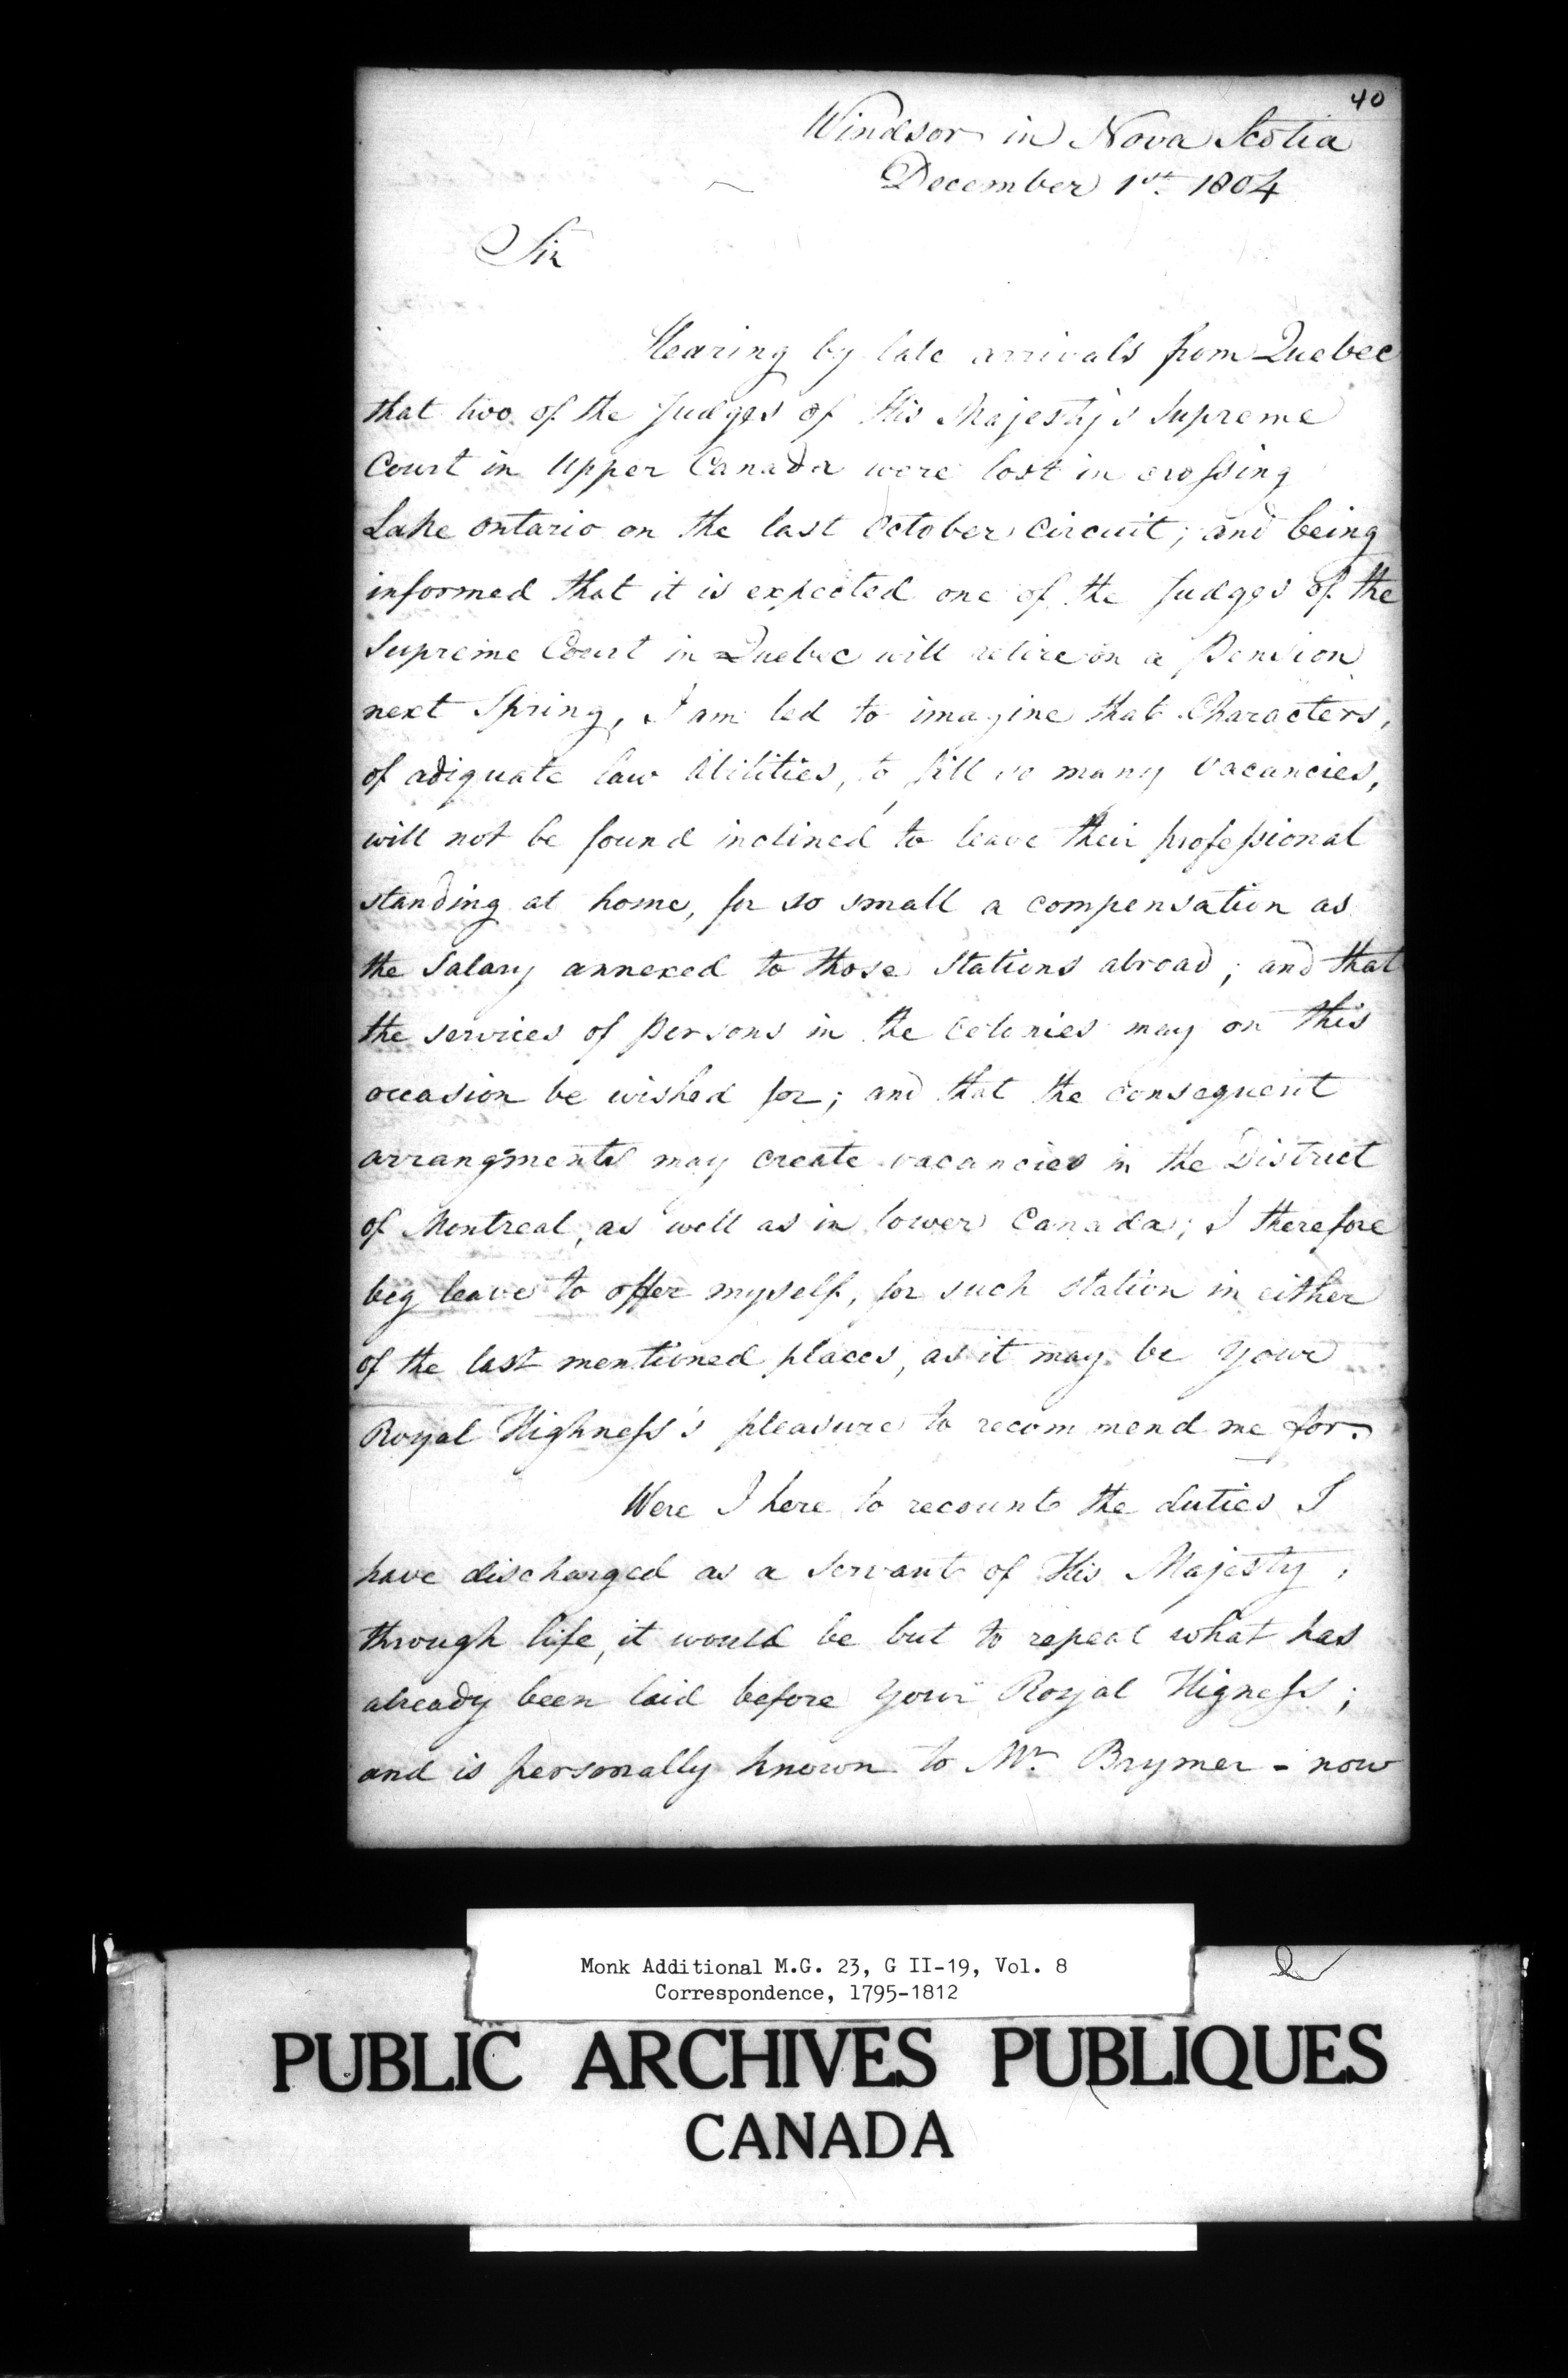 40
Windsor in Nova Scotia
December 1st. 1804
Sir
Hearing by late arrivals from Quebec
that two of the Judges of His Majesty's Supreme
Court in Upper Canada were lost in crossing
Lake Ontario on the last October Circuit; and being
informed that it is expected one of the Judges of the
Supreme Court in Quebec will retire on a Pension
next Spring, I am led to imagine that Characters,
of adiquate law Abilities, to fill so many vacancies,
will not be found inclined to leave their professional
standing at home, for so small a compensation as
the Salary annexed to those Stations abroad; and that
the services of Persons in the Colonies may on this
occasion be wished for; and that the consequent
arrangments may create vacancies in the District
of Montreal, as well as in lower Canada; I therefore
beg leave to offer myself, for such station in either
of the last mentioned places, as it may be Your
Royal Highness's pleasure to recommend me for.
Were I here to recount the duties I
have discharged as a Servant of His Majesty,
through life, it would be but to repeat what has
already been laid before Your Royal Higness;
and is personally known to Mr. Brymer - now
Monk Additional M.G. 23, G II-19, Vol. 8
Correspondence, 1795-1812
PUBLIC ARCHIVES PUBLIQUES
CANADA